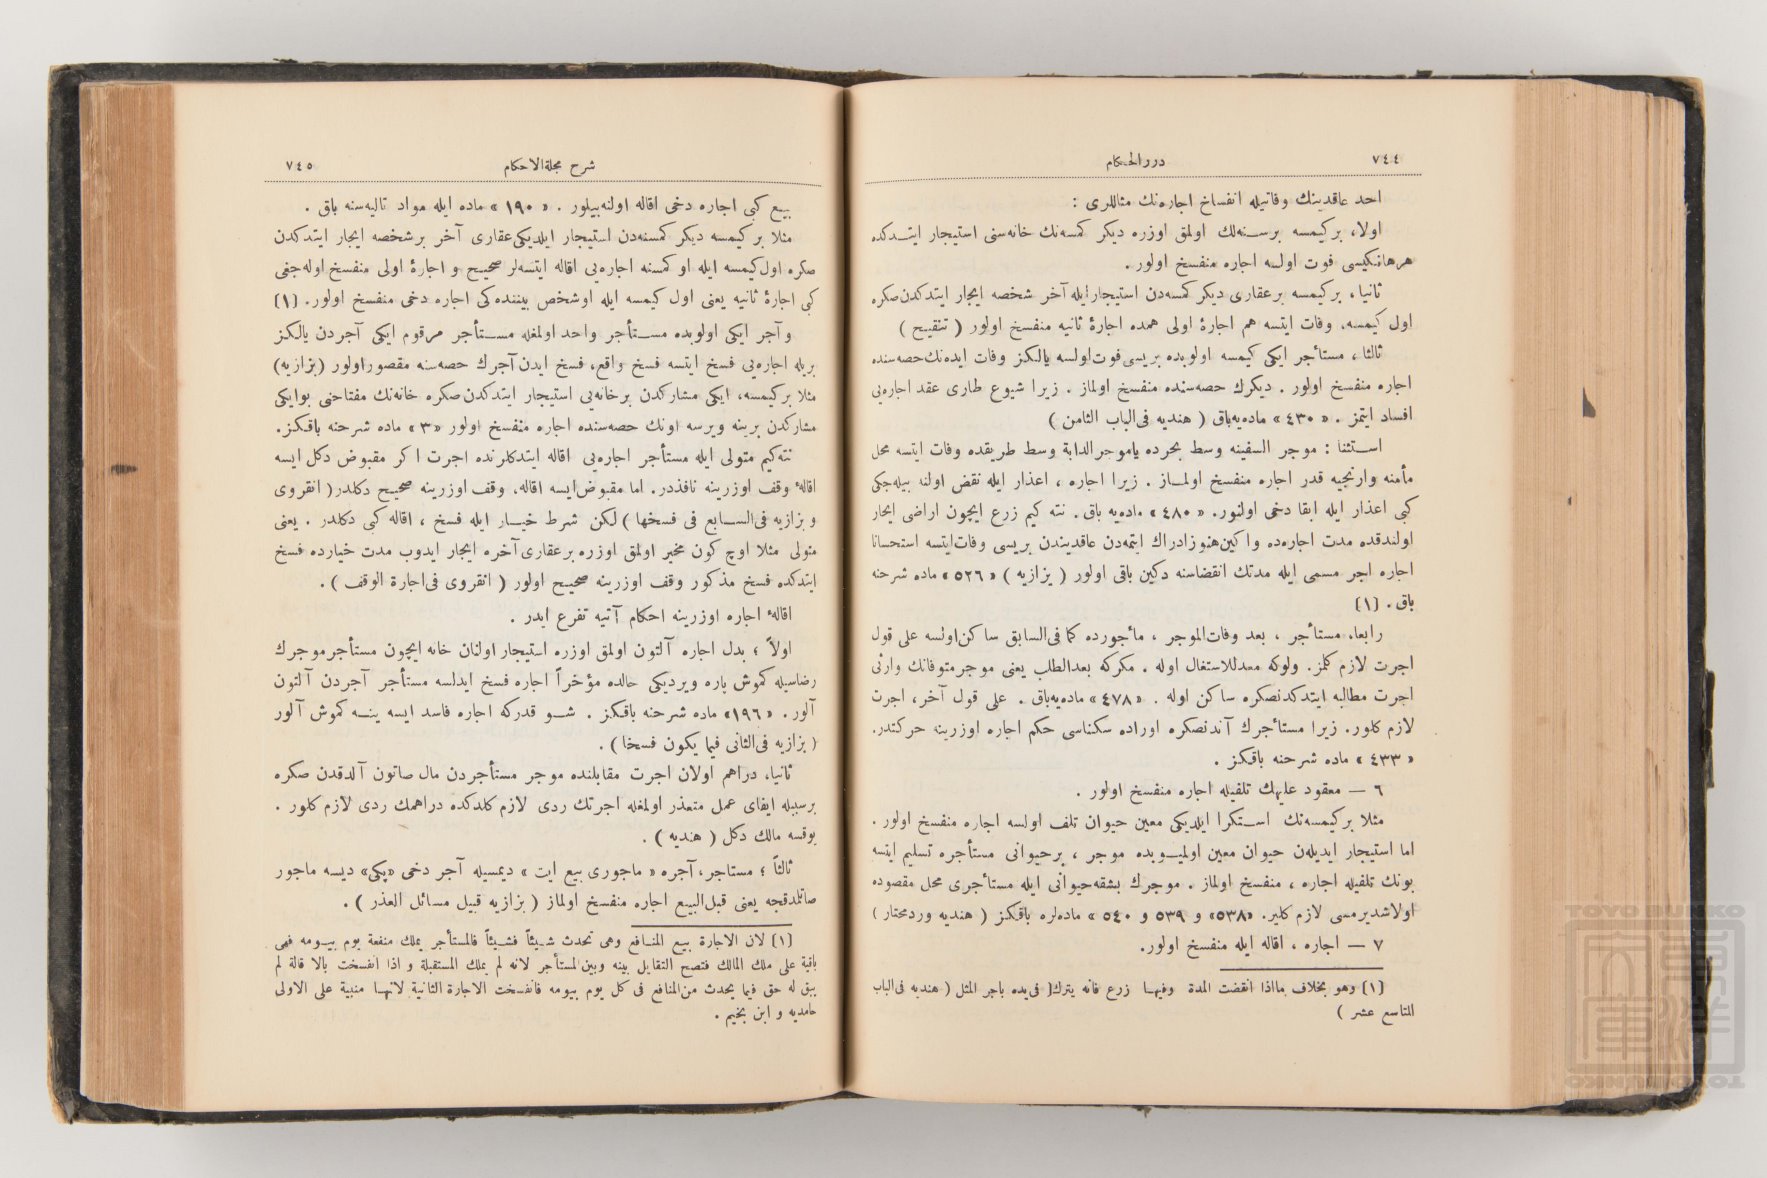 ٧٤٤
درر الحكام
احد عاقدينك وفاتيله انفساخ اجاره‌نك مثاللرى :
اولا، بركيمسه برسنه‌لك اولمق اوزره ديكر كمسه‌نك خانه‌سنى استيجار ايتدكده
هرهانكيسى فوت اولسه اجاره منفسخ اولور.
ثانيا، بركيمسه برعقارى ديكر كمسه‌دن استيجار ايله آخر شخصه ايجار ايتدكدن‌صكره
اول كيمسه، وفات ايتسه هم اجارۀ اولى همده اجارۀ ثانيه منفسخ اولور ( تنقيح )
ثالثا، مستأجر ايكى كيمسه اولوبده بريسى فوت‌اولسه يالكز وفات ايده‌نك‌حصه‌سنده
اجاره منفسخ اولور . ديكرك حصه‌سنده منفسخ اولماز . زيرا شيوع طارى عقد اجاره‌يى
افساد ايتمز . « ٤٣٠ » ماده‌يه‌باق ( هنديه فى‌الباب الثامن )
استثنا : موجر السفينه وسط بحرده ياموجرالدابة وسط طريقده وفات ايتسه محل
مأمنه وارنجيه قدر اجاره منفسخ اولماز . زيرا اجاره ، اعذار ايله نقض اولنه بيله‌جكى
كبى اعذار ايله ابقا دخى اولنور. « ٤٨٠ » ماده‌يه باق . نته كيم زرع ايچون اراضى ايجار
اولندقده مدت اجاره‌ده واكين‌هنوزادراك ايتمه‌دن عاقديندن بريسى وفات‌ايتسه استحسانا
اجاره اجر مسمى ايله مدتك انقضاسنه دكين باقى اولور ( بزازيه ) « ٥٢٦ » ماده شرحنه
باق . [١]
رابعا، مستأجر ، بعد وفات‌الموجر ، مأجورده كما فى‌السابق ساكن‌اولسه على قول
اجرت لازم كلمز. ولوكه معدللاستغلال اوله . مكركه بعدالطلب يعنى موجرمتوفانك وارثى
اجرت مطالبه ايتدكدنصكره ساكن اوله . « ٤٧٨ » ماده‌يه‌باق . على قول آخر، اجرت
لازم كلور. زيرا مستأجرك آندنصكره اوراده سكناسى حكم اجاره اوزرينه حركتدر.
« ٤٣٣ » ماده شرحنه باقكز .
٦ — معقود عليهك تلفيله اجاره منفسخ اولور .
مثلا بركيمسه‌نك استكرا ايلديكى معين حيوان تلف اولسه اجاره منفسخ اولور .
اما استيجار ايديله‌ن حيوان معين اولميوبده موجر ، برحيوانى مستأجره تسليم ايتسه
بونك تلفيله اجاره ، منفسخ اولماز . موجرك بشقه‌حيوانى ايله مستأجرى محل مقصوده
اولاشديرمسى لازم كلير. «٥٣٨» و ٥٣٩ و ٥٤٠ » ماده‌لره باقكز ( هنديه وردمختار )
٧ — اجاره ، اقاله ايله منفسخ اولور.
[١] وهو بخلاف مااذا انقضت المدة وفيها زرع فانه يترك فى‌يده باجر المثل ( هنديه فى‌الباب
التاسع عشر )
شرح مجلة الاحكام
٧٤٥
بيع كبى اجاره دخى اقاله اولنه‌بيلور . « ١٩٠ » ماده ايله مواد تاليه‌سنه باق .
مثلا بركيمسه ديكر كمسنه‌دن استيجار ايلديكى‌عقارى آخر برشخصه ايجار ايتدكدن
صكره اول‌كيمسه ايله او كمسنه اجاره‌يى اقاله ايتسه‌لر صحيح و اجارۀ اولى منفسخ اوله‌جغى
كبى اجارۀ ثانيه يعنى اول كيمسه ايله اوشخص بيننده‌كى اجاره دخى منفسخ اولور. [١]
و آجر ايكى اولوبده مستأجر واحد اولمغله مستأجر مرقوم ايكى آجردن يالكز
بريله اجاره‌يى فسخ ايتسه فسخ واقع، فسخ ايدن‌آجرك حصه‌سنه مقصور‌اولور (بزازيه)
مثلا بركيمسه، ايكى مشاركدن برخانه‌يى استيجار ايتدكدن‌صكره خانه‌نك مفتاحنى بوايكى
مشاركدن برينه ويرسه اونك حصه‌سنده اجاره منفسخ اولور «٣» ماده شرحنه باقكز.
نته‌كيم متولى ايله مستأجر اجاره‌يى اقاله ايتدكلرنده اجرت اكر مقبوض دكل ايسه
اقاله‌ٔ وقف اوزرينه نافذدر. اما مقبوض‌ايسه اقاله، وقف اوزرينه صحيح دكلدر( انقروى
و بزازيه فى‌السابع فى فسخها ) لكن شرط خيار ايله فسخ ، اقاله كبى دكلدر . يعنى
متولى مثلا اوچ كون مخير اولمق اوزره برعقارى‌آخره ايجار ايدوب مدت خيارده فسخ
ايتدكده فسخ مذكور وقف اوزرينه صحيح اولور ( انقروى فى‌اجارة الوقف ) .
اقاله‌ٔ اجاره اوزرينه احكام آتيه تفرع ايدر .
اولاً ؛ بدل اجاره آلتون اولمق اوزره استيجار اولنان خانه ايچون مستأجرموجرك
رضاسيله كموش پاره ويرديكى حالده مؤخراً اجاره فسخ ايدلسه مستأجر آجردن آلتون
آلور. «١٩٦» ماده شرحنه باقكز . شو قدركه اجاره فاسد ايسه ينه كموش آلور
( بزازيه فى‌الثانى فيما يكون فسخا ) .
ثانيا، دراهم اولان اجرت مقابلنده موجر مستأجردن مال صاتون آلدقدن صكره
برسببله ايفاى عمل متعذر اولمغله اجرتك ردى لازم كلدكده دراهمك ردى لازم كلور .
يوقسه مالك دكل ( هنديه ) .
ثالثاً ؛ مستاجر، آجره « ماجورى بيع ايت » ديمسيله آجر دخى «پكى» ديسه ماجور
صاتلدقجه يعنى قبل‌البيع اجاره منفسخ اولماز ( بزازيه قبيل مسائل العذر ) .
[١] لان الاجارة بيع المنافع وهى تحدث شيئاً فشيئاً فالمستأجر يملك منفعة يوم بيومه فهى
باقية على ملك المالك فتصح التقايل بينه وبين‌المستأجر لانه لم يملك المستقبلة و اذا انفسخت بالاقالة لم
يبق له حق فيما يحدث من‌المنافع فى كل يوم بيومه فانفسخت الاجارة الثانية لانها مبنية على الاولى
حامديه و ابن نجيم .
TOYO BUNKO
TOYO BUNKO